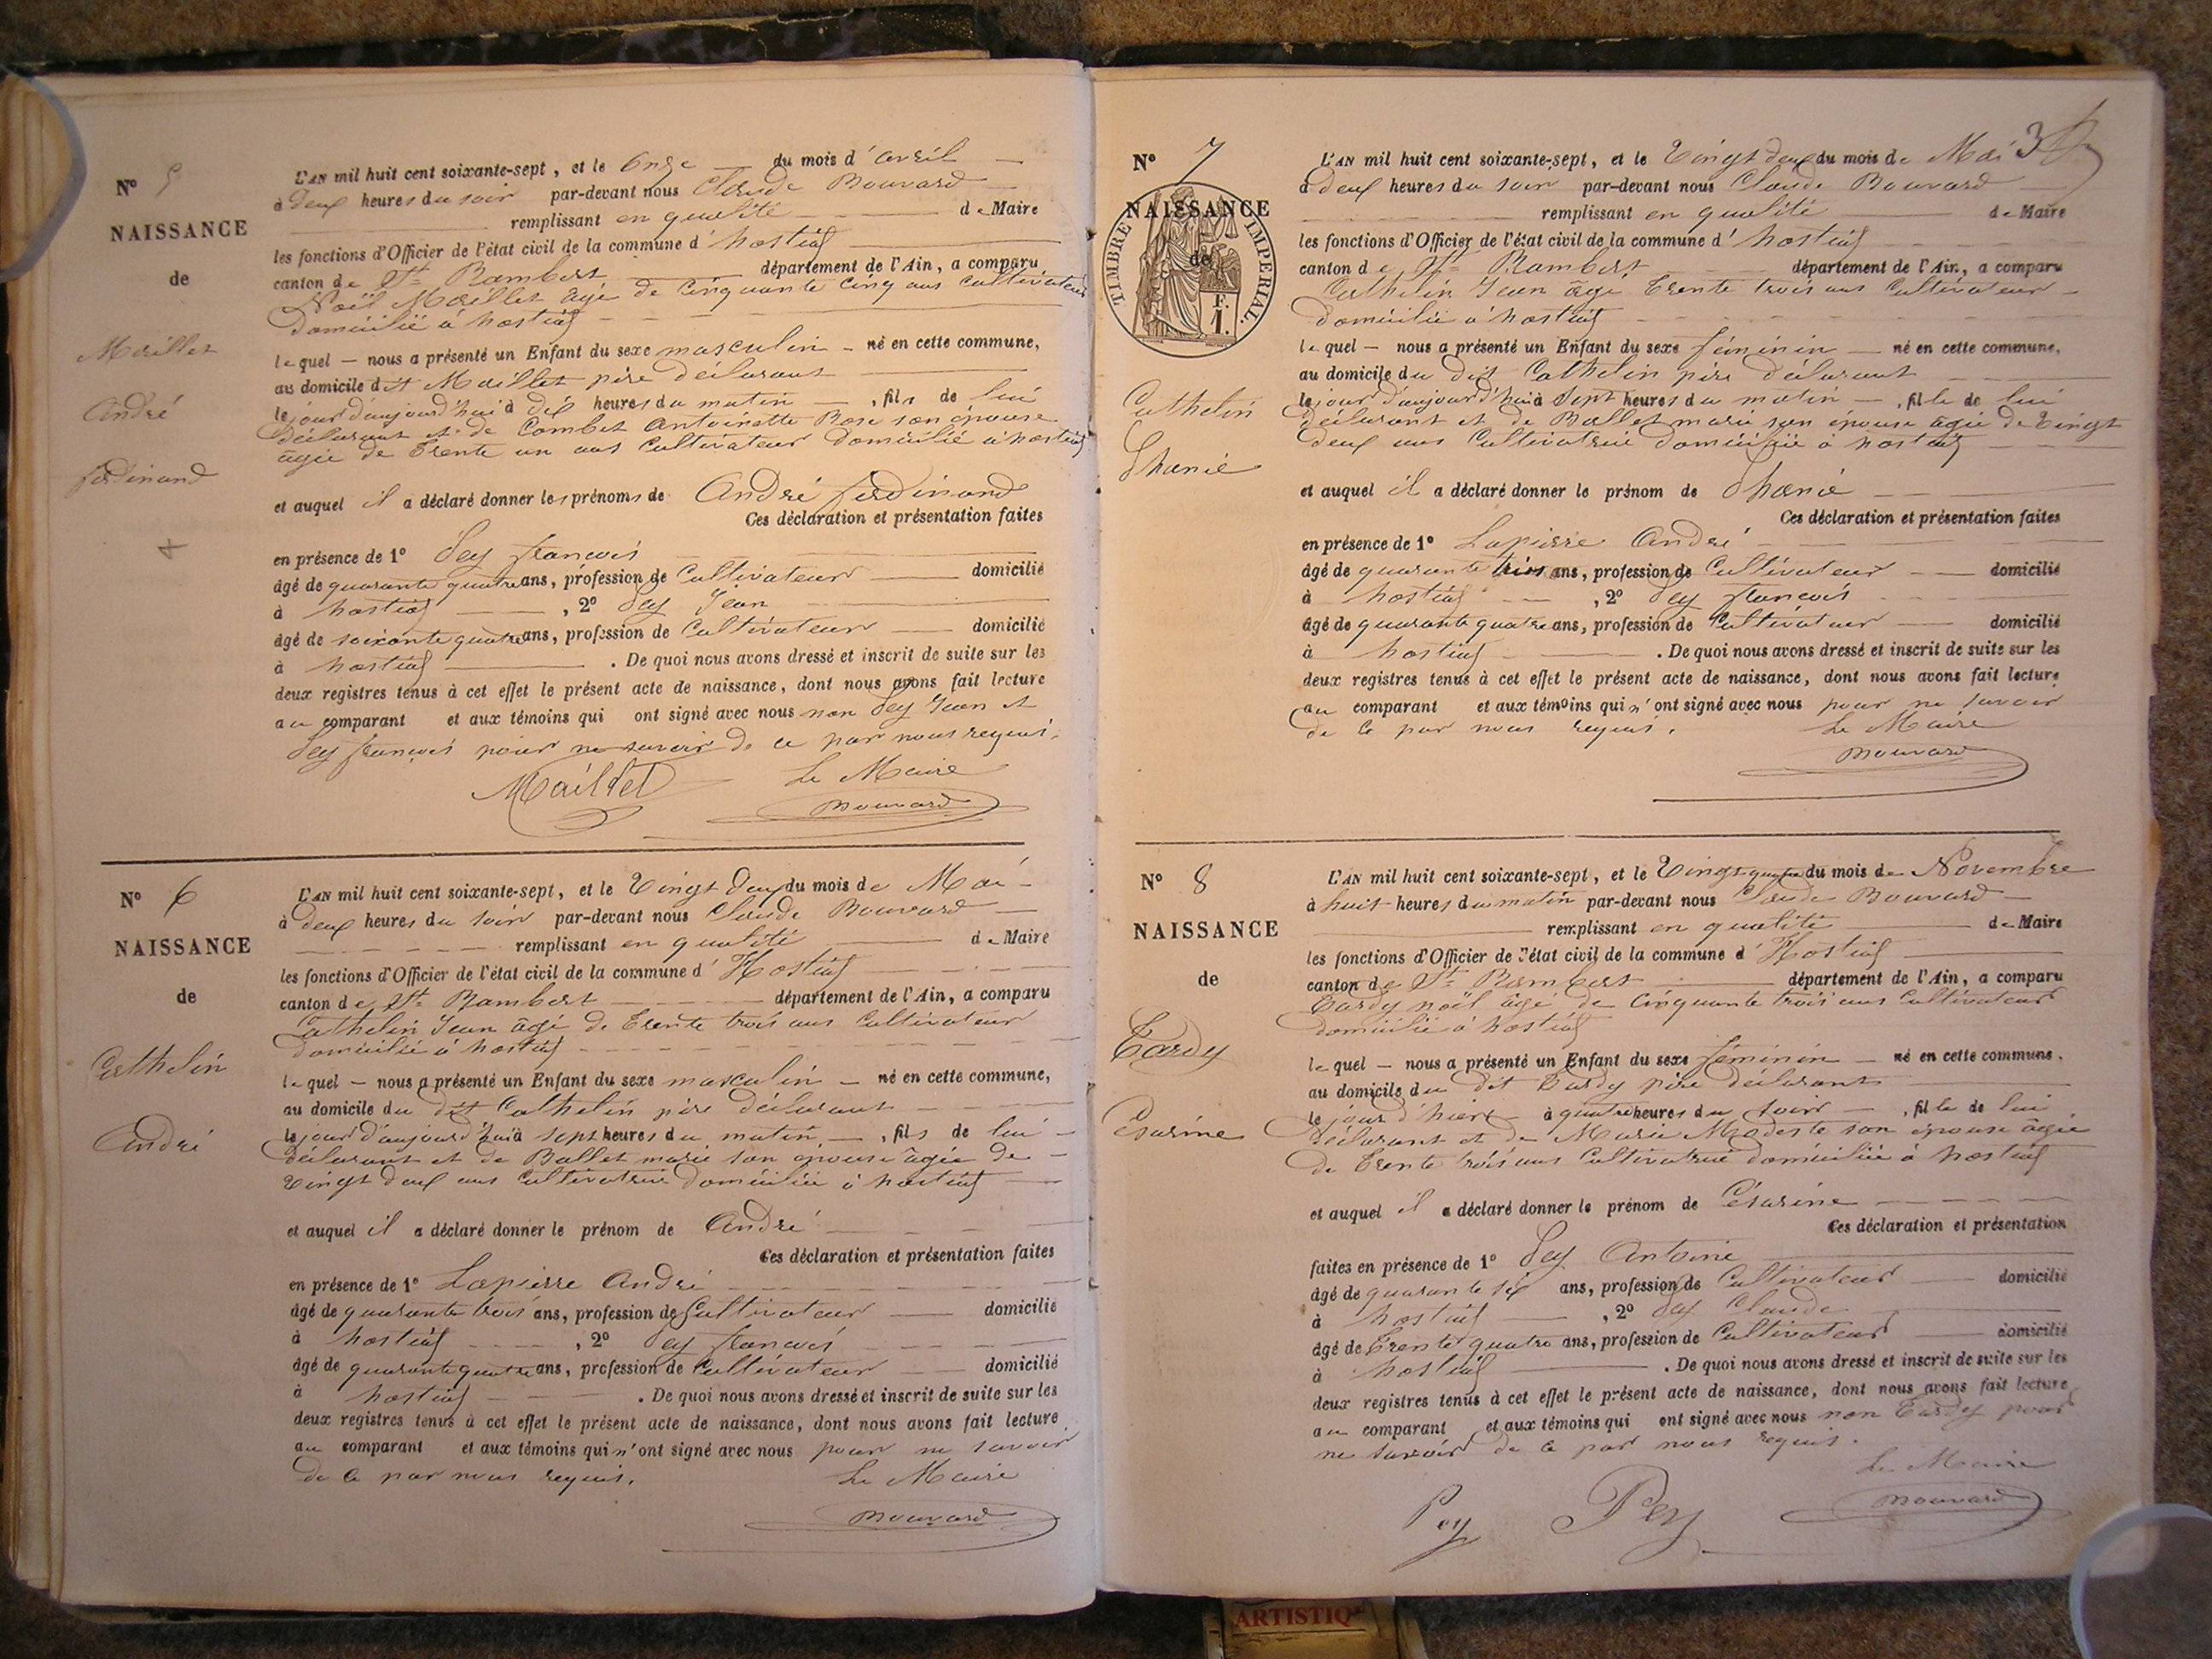 N° 5
NAISSANCE
de
Maillet
André
ferdinand
L'AN mil huit cent soixante-sept, et le Onze du mois d'avril
à deux heures du soir par-devant nous Claude Bouvard
remplissant en qualité de Maire
les fonctions d'Officier de l'état civil de la commune d'hostiaz
canton de St Rambert département de l'Ain, a comparu
Noël Maillet âgé de Cinquante Cinq ans Cultivateur
domicilié à hostiaz
lequel — nous a présenté un Enfant du sexe masculin — né en cette commune,
au domicile dit Maillet père déclarant
le jour d'aujourd'hui à dix heures du matin —, fils de lui
déclarant et de Combet Antoinette Rose son épouse
âgée de Trente un ans Cultivateur domicilié à hostiaz
et auquel il a déclaré donner les prénoms de André ferdinand
Ces déclaration et présentation faites
en présence de 1° Pey françois
âgé de quarante quatre ans, profession de Cultivateur domicilié
à hostiaz, 2° Pey Jean
âgé de soixante quatre ans, profession de Cultivateur domicilié
à hostiaz. De quoi nous avons dressé et inscrit de suite sur les
deux registres tenus à cet effet le présent acte de naissance, dont nous avons fait lecture
au comparant et aux témoins qui ont signé avec nous non Pey Jean et
Pey françois pour ne savoir de ce par nous requis.
Maillet Le Maire
Bouvard
N° 6
NAISSANCE
de
Cathelin
André
L'AN mil huit cent soixante-sept, et le Vingt deux du mois de Mai
à deux heures du soir par-devant nous Claude Bouvard
remplissant en qualité de Maire
les fonctions d'Officier de l'état civil de la commune d'Hostiaz
canton de St Rambert département de l'Ain, a comparu
Cathelin Jean âgé de Trente trois ans Cultivateur
domicilié à hostiaz
lequel — nous a présenté un Enfant du sexe masculin — né en cette commune,
au domicile du dit Cathelin père déclarant
le jour d'aujourd'hui à sept heures du matin —, fils de lui
déclarant et de Ballet marie son épouse âgée de
Vingt deux ans Cultivatrice domiciliée à hostiaz
et auquel il a déclaré donner le prénom de André
Ces déclaration et présentation faites
en présence de 1° Lapierre André
âgé de quarante trois ans, profession de Cultivateur domicilié
à hostiaz, 2° Pey françois
âgé de quarante quatre ans, profession de Cultivateur domicilié
à hostiaz. De quoi nous avons dressé et inscrit de suite sur les
deux registres tenus à cet effet le présent acte de naissance, dont nous avons fait lecture
au comparant et aux témoins qui n'ont signé avec nous pour ne savoir
de ce par nous requis. Le Maire
Bouvard
3
N° 7
NAISSANCE
de
TIMBRE IMPERIAL.
F.
1.
Cathelin
L'AN mil huit cent soixante-sept, et le Vingt deux du mois de Mai
à deux heures du soir par-devant nous Claude Bouvard
remplissant en qualité de Maire
les fonctions d'Officier de l'état civil de la commune d'hostiaz
canton de St Rambert département de l'Ain, a comparu
Cathelin Jean âgé Trente trois ans Cultivateur
domicilié à hostiaz
lequel — nous a présenté un Enfant du sexe féminin — né en cette commune,
au domicile du dit Cathelin père déclarant
le jour d'aujourd'hui à Sept heures du matin —, fille de lui
déclarant et de Ballet marie son épouse âgée de Vingt
deux ans Cultivatrice domiciliée à hostiaz
et auquel il a déclaré donner le prénom de
Ces déclaration et présentation faites
en présence de 1° Lapierre André
âgé de quarante trois ans, profession de Cultivateur domicilié
à hostiaz, 2° Pey françois
âgé de quarante quatre ans, profession de Cultivateur domicilié
à hostiaz. De quoi nous avons dressé et inscrit de suite sur les
deux registres tenus à cet effet le présent acte de naissance, dont nous avons fait lecture
au comparant et aux témoins qui n'ont signé avec nous pour ne savoir
de ce par nous requis. Le Maire
Bouvard
N° 8
NAISSANCE
de
Tardy
Césarine
L'AN mil huit cent soixante-sept, et le Vingt-quatre du mois de Novembre
à huit heures du matin par-devant nous Claude Bouvard
remplissant en qualité de Maire
les fonctions d'Officier de l'état civil de la commune d'Hostiaz
canton de St Rambert département de l'Ain, a comparu
Tardy noël âgé de Cinquante trois ans Cultivateur
domicilié à hostiaz
lequel — nous a présenté un Enfant du sexe féminin — né en cette commune,
au domicile du dit Tardy père déclarant
le jour d'hier à quatre heures du soir —, fille de lui
déclarant et de Marie Modeste son épouse âgée
de Trente trois ans Cultivatrice domiciliée à hostiaz
et auquel il a déclaré donner le prénom de Césarine
Ces déclaration et présentation
faites en présence de 1° Pey Antoine
âgé de quarante six ans, profession de Cultivateur domicilié
à hostiaz, 2° Pey Claude
âgé de Trente quatre ans, profession de Cultivateur domicilié
à hostiaz. De quoi nous avons dressé et inscrit de suite sur les
deux registres tenus à cet effet le présent acte de naissance, dont nous avons fait lecture
au comparant et aux témoins qui ont signé avec nous non Tardy pour
ne savoir de ce par nous requis.
Le Maire
Pey Pey Bouvard
ARTISTIQ